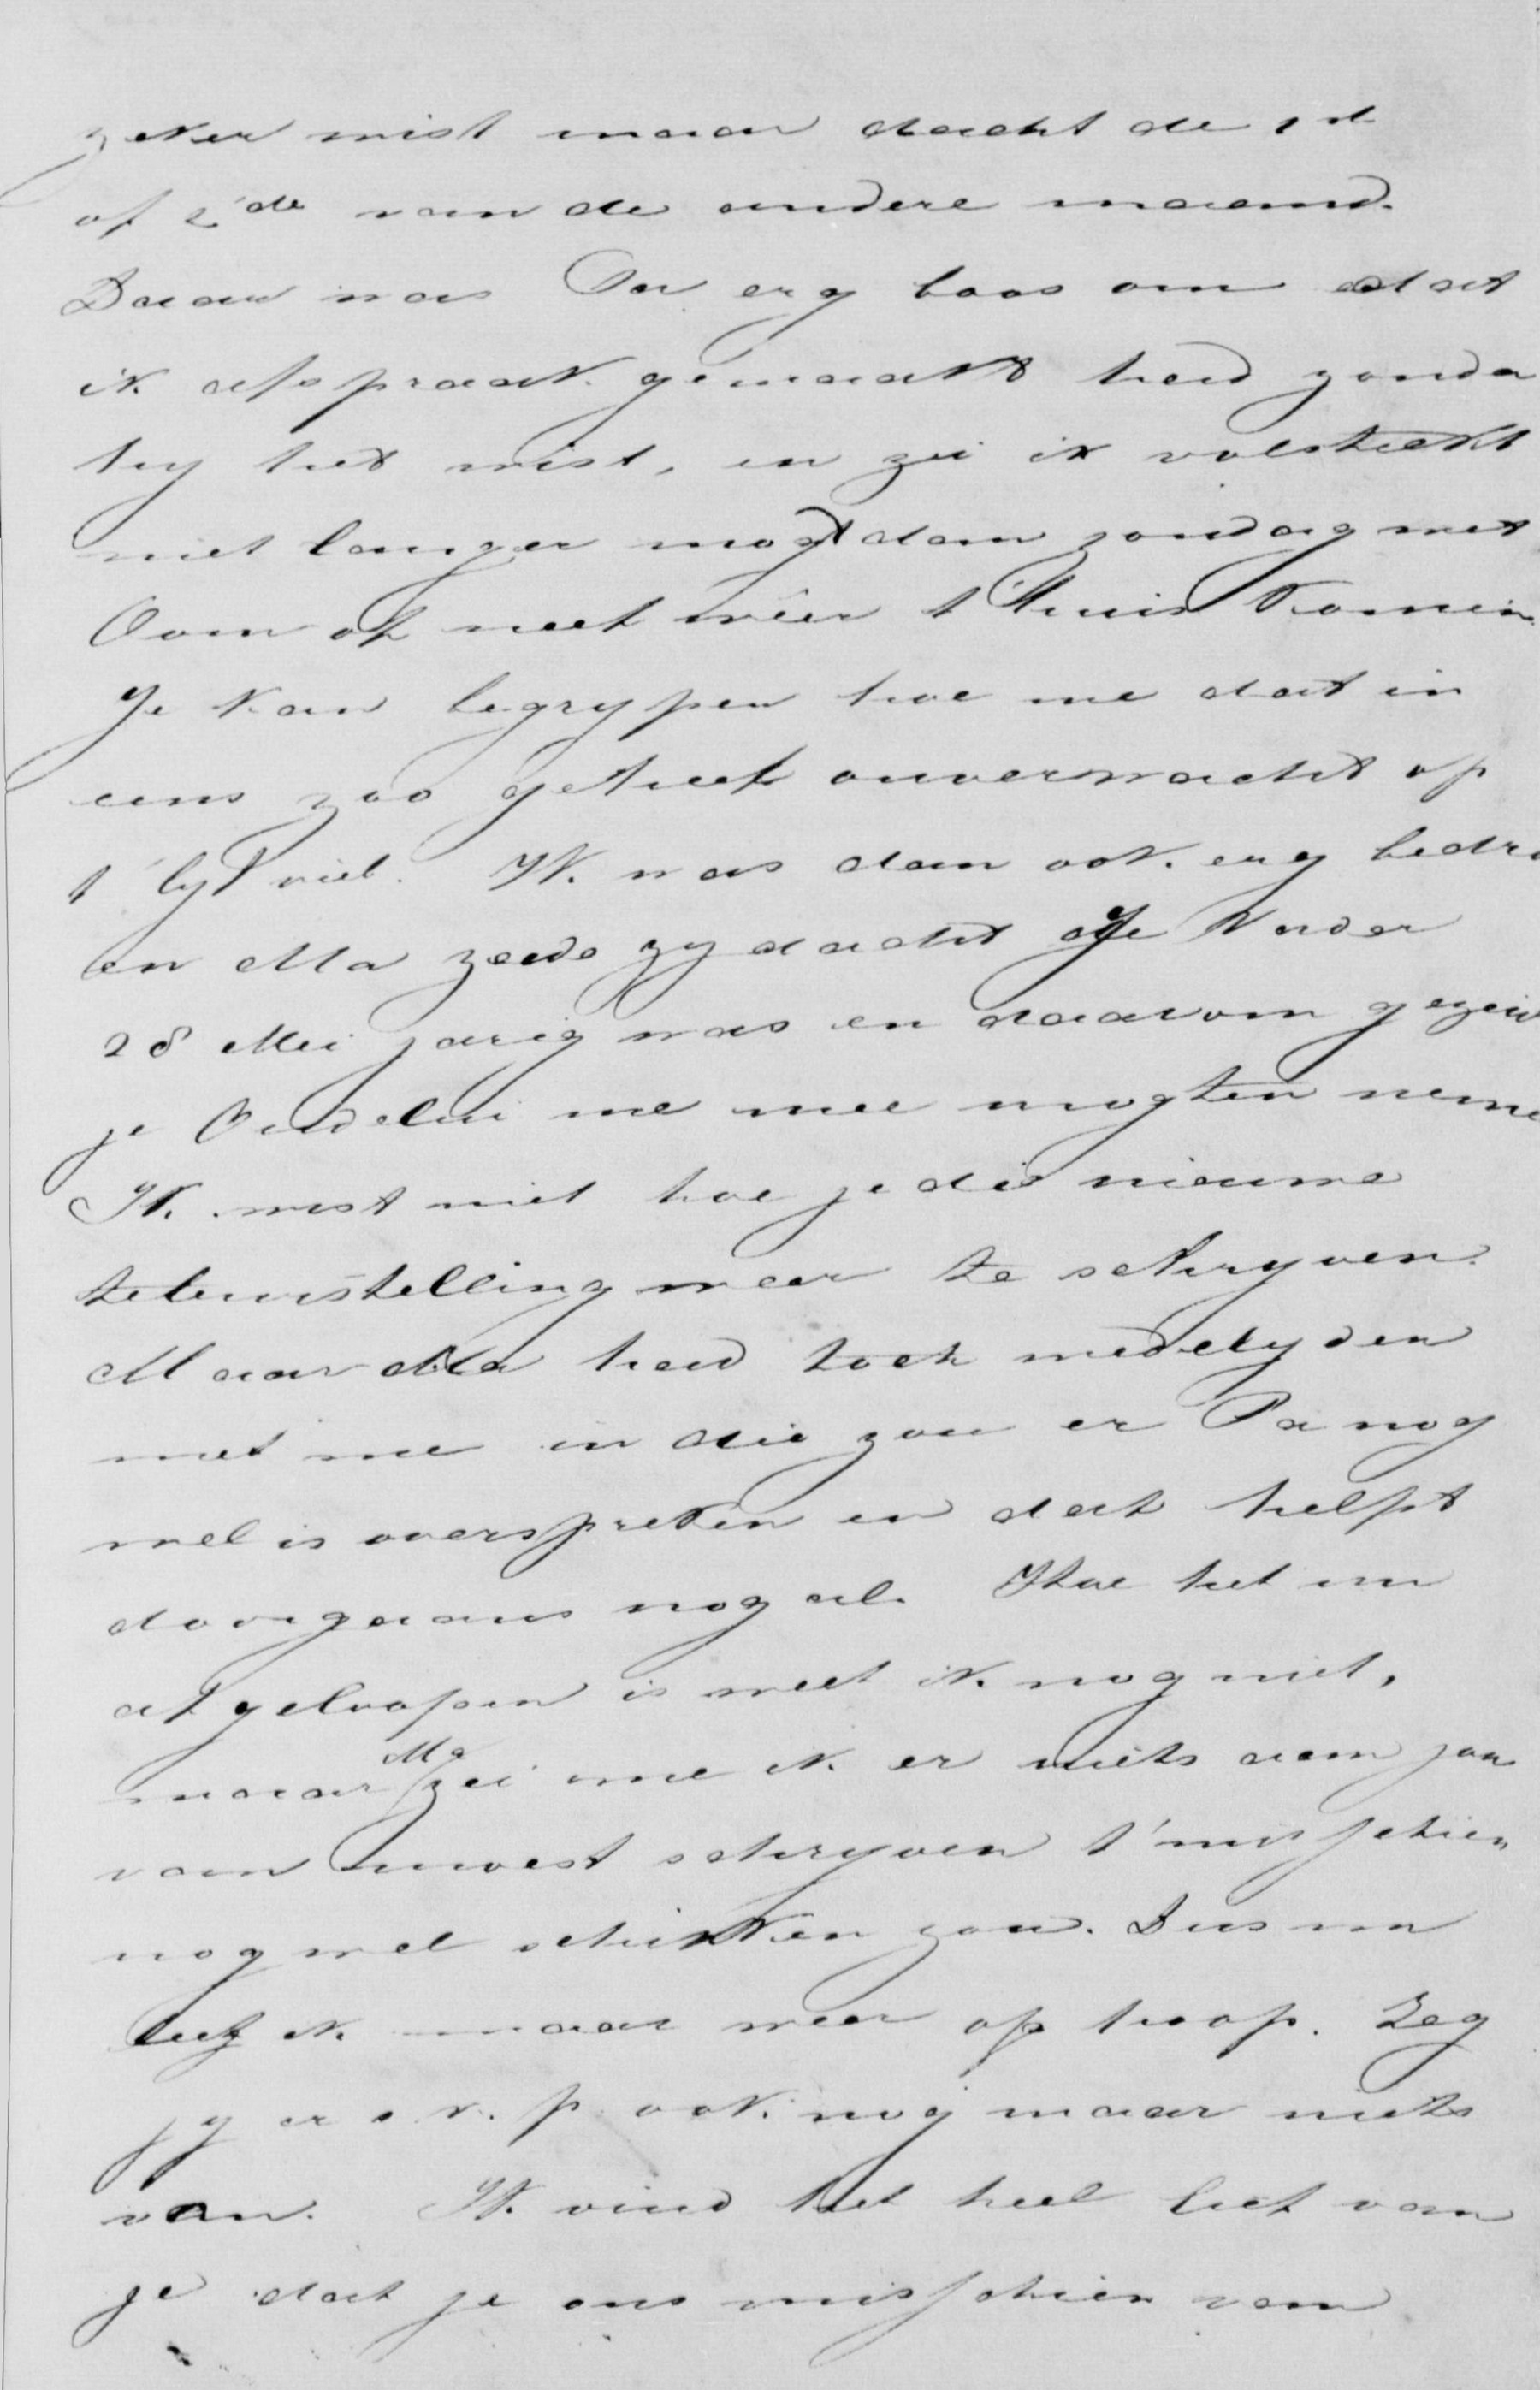 zeker wist maar dacht de 1st
of 2de van de andere maand.
Daar was Pa erg boos om dat
ik afspraak gemaakt had zonder
hy het wist, en zei ik volstrekt
niet langer mogt dan zondag met
Oom of neef weêr t'Huis komen
Je kan begrypen hoe me dat in
eens zoo geheel onverwacht op
t'lyf viel. Ik was dan ook erg bedro
en Ma zeide zy dacht Je Vader
28 Mei jarig was en daarom gezeid
je Oudelui me mee mogten neme
Ik wist niet hoe je die nieuwe
teleurstelling weer te schryven.
Maar Ma had toch medelyden
met me en die zou er Pa nog
wel is overspreken en dat helpt
doorgaans nog al. Hoe het nu
afgeloopen is weet ik nog niet,
maar Ma zei me ik er niets aan jou
van moest schryven t'misschien
nog wel schikken zou. Dus nu
leef ik maar weer op hoop. Zeg
jy er s.v.p. ook nog maar niets
van. Ik vind het heel lief van
je dat je ons misschien van